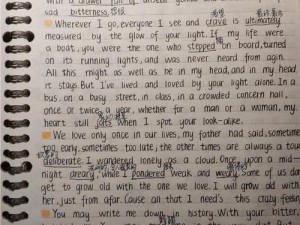 with a drawer full of
sad bitterness.
Wherever I go, everyone I see and crave is ultimately
measured by the glow of your light. If my life were
a boat, you were the one who stopped on board, turned
on its running lights, and was never heard from agin.
All this might as well be in my head, and in my head
it stays. But I've lived and loved by your light alone. In a
bus, on a busy street, in class, in a crowded concert hall,
once or twice a year, whether for a man or a woman, my
heart still jolts when I spot your look-alike.
We love only once in our lives, my father had said, sometimes
too early, sometimes too late; the other times are always a touch
deliberate. I wandered lonely as a cloud. Once upon a mid-
night dreary, while I pondered weak and weary. Some of us don't
get to grow old with the one we love. I will grow old with
her, just from afar. Cause all that I need's this crazy feeling
You may write me down in history. With your bitter,